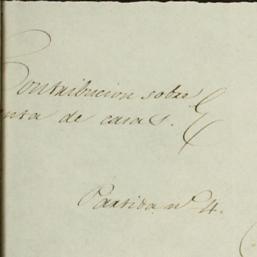 Contribucion sobre
enta de casas.
Partida nº 4.